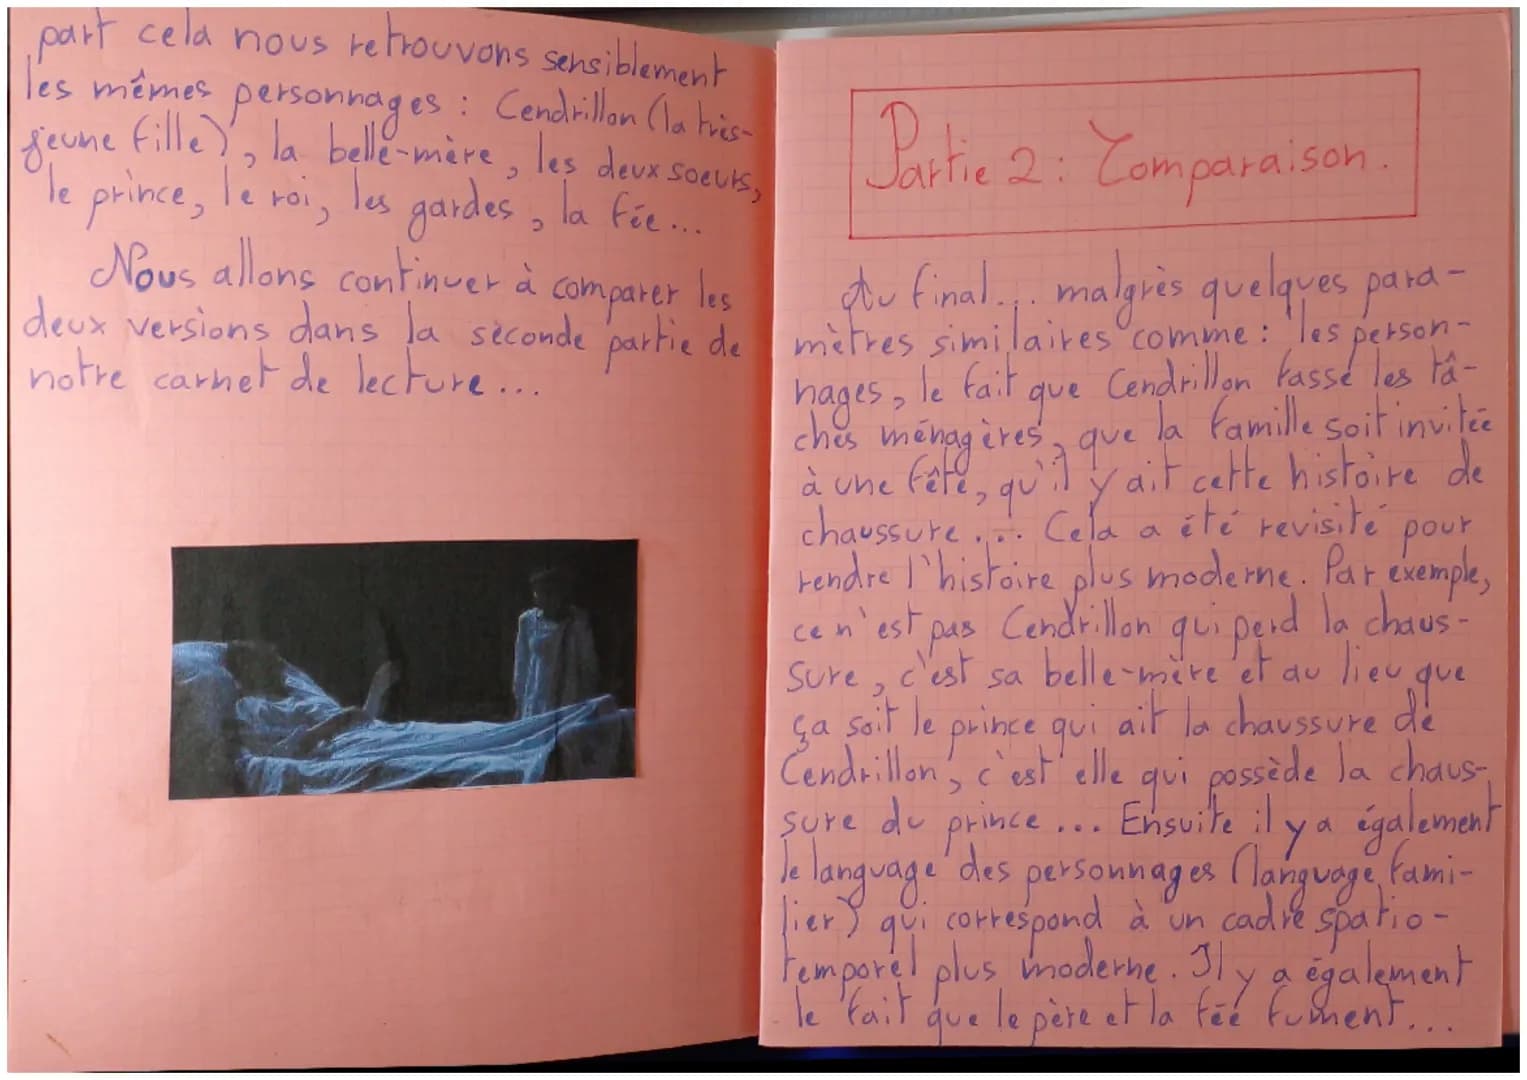 part cela nous retrouvons sensiblement
les mêmes personnages : Cendrillon (la très-
jeune fille), la belle-mère, les deux soeurs,
le prince, le roi, les gardes, la fée...
Nous allons continuer à comparer les
deux versions dans la seconde partie de
notre carnet de lecture...
Partie 2 : Comparaison.
Au final... malgrès quelques para-
mètres similaires comme : les person-
nages, le fait que Cendrillon fasse les tâ-
ches ménagères, que la famille soit invitée
à une fête, qu'il y ait cette histoire de
chaussure... Cela a été revisité pour
rendre l'histoire plus moderne. Par exemple,
ce n'est pas Cendrillon qui perd la chaus-
sure, c'est sa belle-mère et au lieu que
ça soit le prince qui ait la chaussure de
Cendrillon, c'est elle qui possède la chaus-
sure du prince... Ensuite il y a également
le language des personnages (language fami-
lier) qui correspond à un cadre spatio-
temporel plus moderne. Il y a également
le fait que le père et la fée fument...